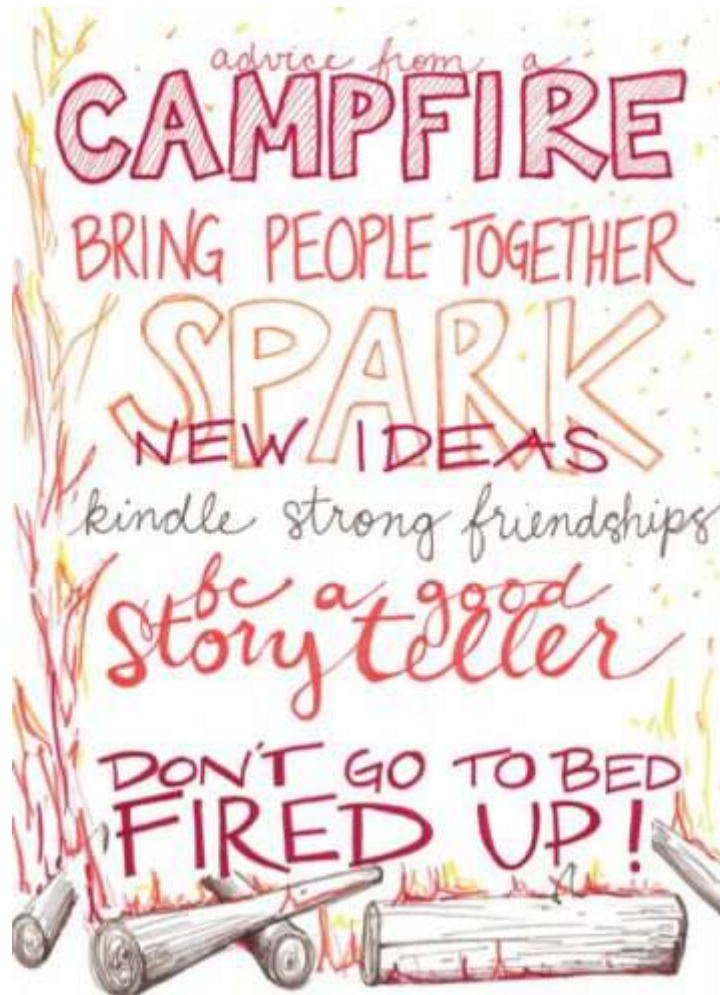 advice from a
CAMPFIRE
BRING PEOPLE TOGETHER
SPARK
NEW IDEAS
kindle strong friendships
be a good
story teller
DON'T GO TO BED
FIRED UP!